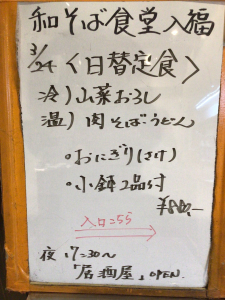 和そば食堂入福
3/24 〈日替定食〉
冷)山菜おろし
温)肉そば・うどん
・おにぎり(さけ)
・小鉢2品付
¥880.-
入口こちら
夜17:30〜
「居酒屋」OPEN.